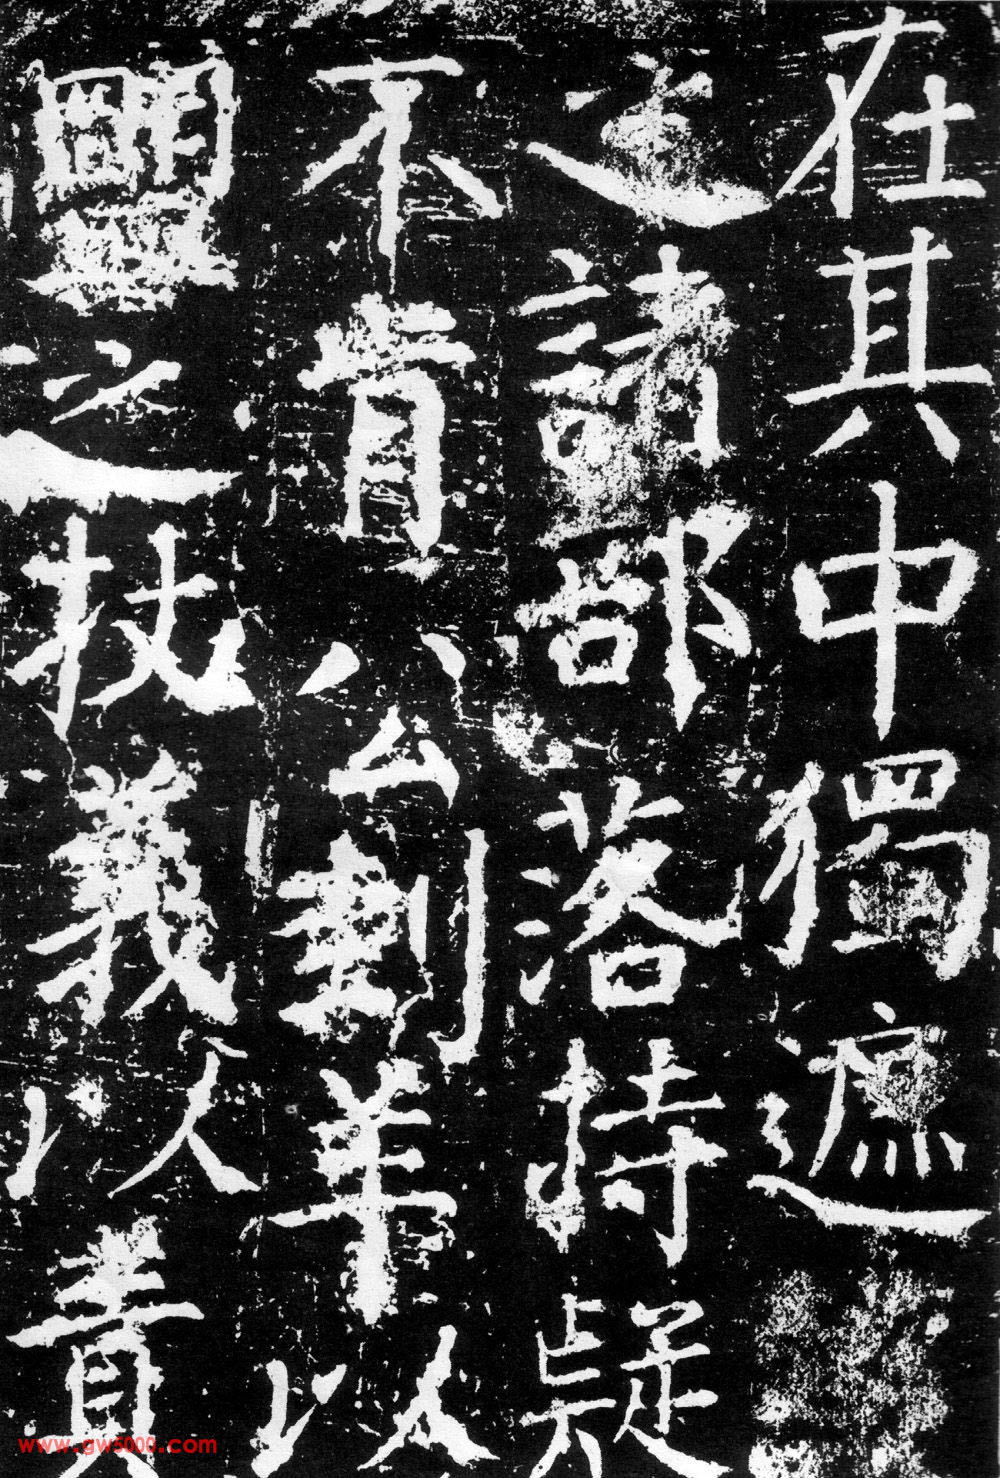 在其中獨遮
之諸部落持疑
不肯公刲羊以
盟之杖義以責
www.gw5000.com